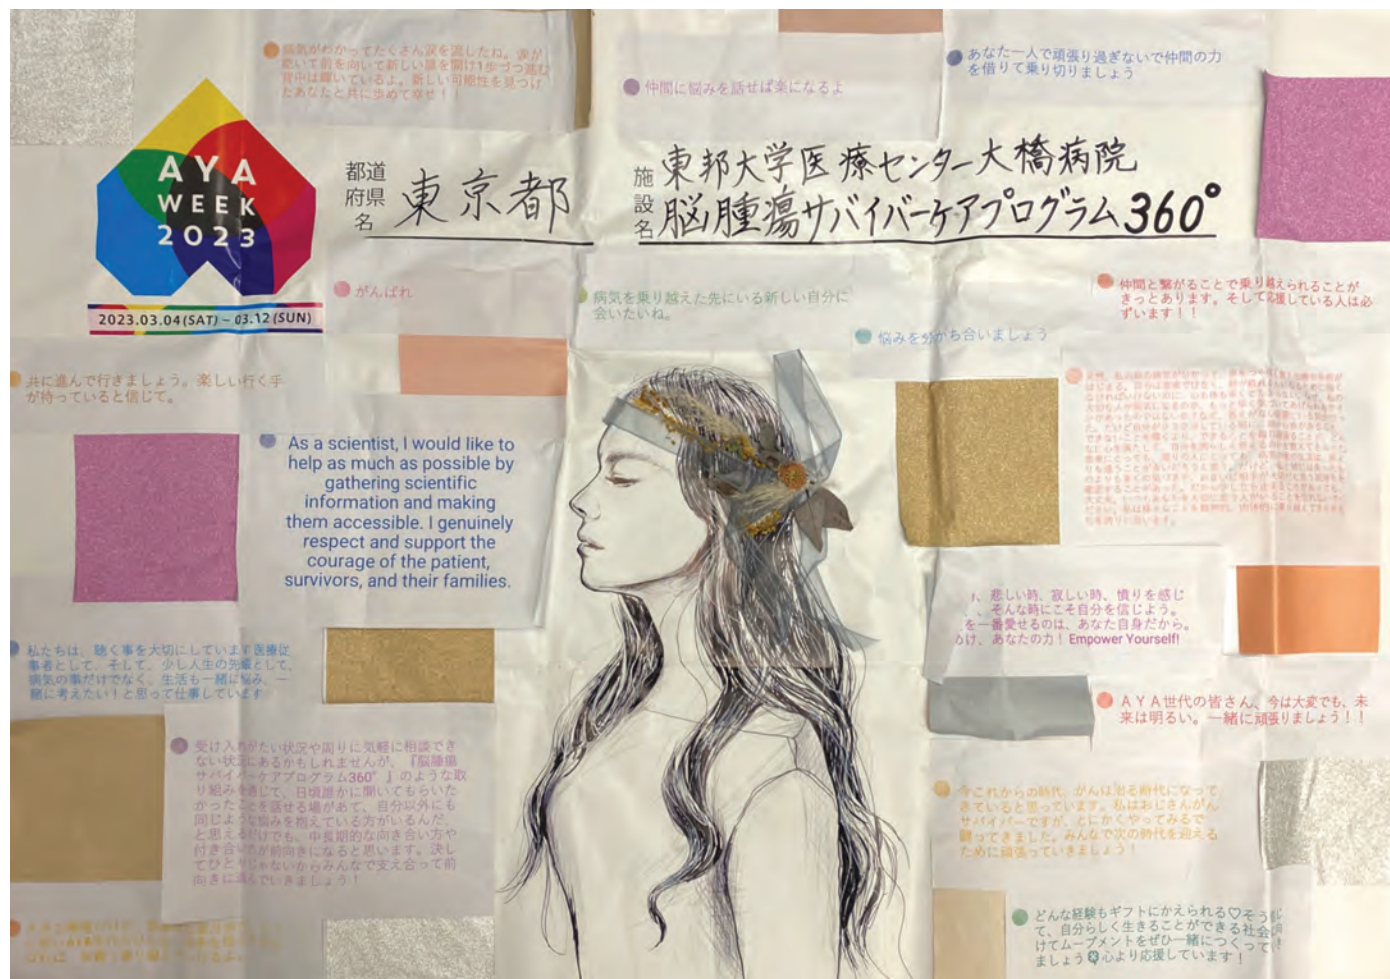 病気がわかってたくさん涙を流したね。涙が
乾いて前を向いて新しい扉を開け1歩づつ進む
背中は輝いているよ。新しい可能性を見つけ
たあなたと共に歩めて幸せ！！
仲間に悩みを話せば楽になるよ
あなた一人で頑張り過ぎないで仲間の力
を借りて乗り切りましょう
AYA
WEEK
2023
2023.03.04(SAT) – 03.12(SUN)
都道
府県
名
東京都
施
設
名
東邦大学医療センター大橋病院
脳腫瘍サバイバーケアプログラム360°
がんばれ
病気を乗り越えた先にいる新しい自分に
会いたいね。
仲間と繋がることで乗り越えられることが
きっとあります。そして応援している人は必
ずいます！！
悩みを分かち合いましょう
共に進んで行きましょう。楽しい行く手
が待っていると信じて。
As a scientist, I would like to
help as much as possible by
gathering scientific
information and making
them accessible. I genuinely
respect and support the
courage of the patient,
survivors, and their families.
、悲しい時、寂しい時、憤りを感じ
、そんな時にこそ自分を信じよう。
を一番愛せるのは、あなた自身だから。
け、あなたの力！Empower Yourself!
私たちは、聴く事を大切にしています医療従
事者として、そして、少し人生の先輩として、
病気の事だけでなく、生活も一緒に悩み、一
緒に考えたい！と思って仕事しています
AYA世代の皆さん、今は大変でも、未
来は明るい。一緒に頑張りましょう！！
受け入れがたい状況や周りに気軽に相談でき
ない状況にあるかもしれませんが、『脳腫瘍
サバイバーケアプログラム360°』のような取
り組みを通じて、日頃誰かに聞いてもらいた
かったことを話せる場があて、自分以外にも
同じような悩みを抱えている方がいるんだ、
と思えるだけでも、中長期的な向き合い方や
付き合い方が前向きになると思います。決し
てひとりじゃないからみんなで支え合って前
向きに進んでいきましょう！
今これからの時代、がんは治る時代になって
きていると思っています。私はおじさんがん
サバイバーですが、とにかくやってみるで
闘ってきました。みんなで次の時代を迎える
ために頑張っていきましょう！
どんな経験もギフトにかえられる♡そう
て、自分らしく生きることができる社会
けてムーブメントをぜひ一緒につくって
ましょう🍀心より応援しています！